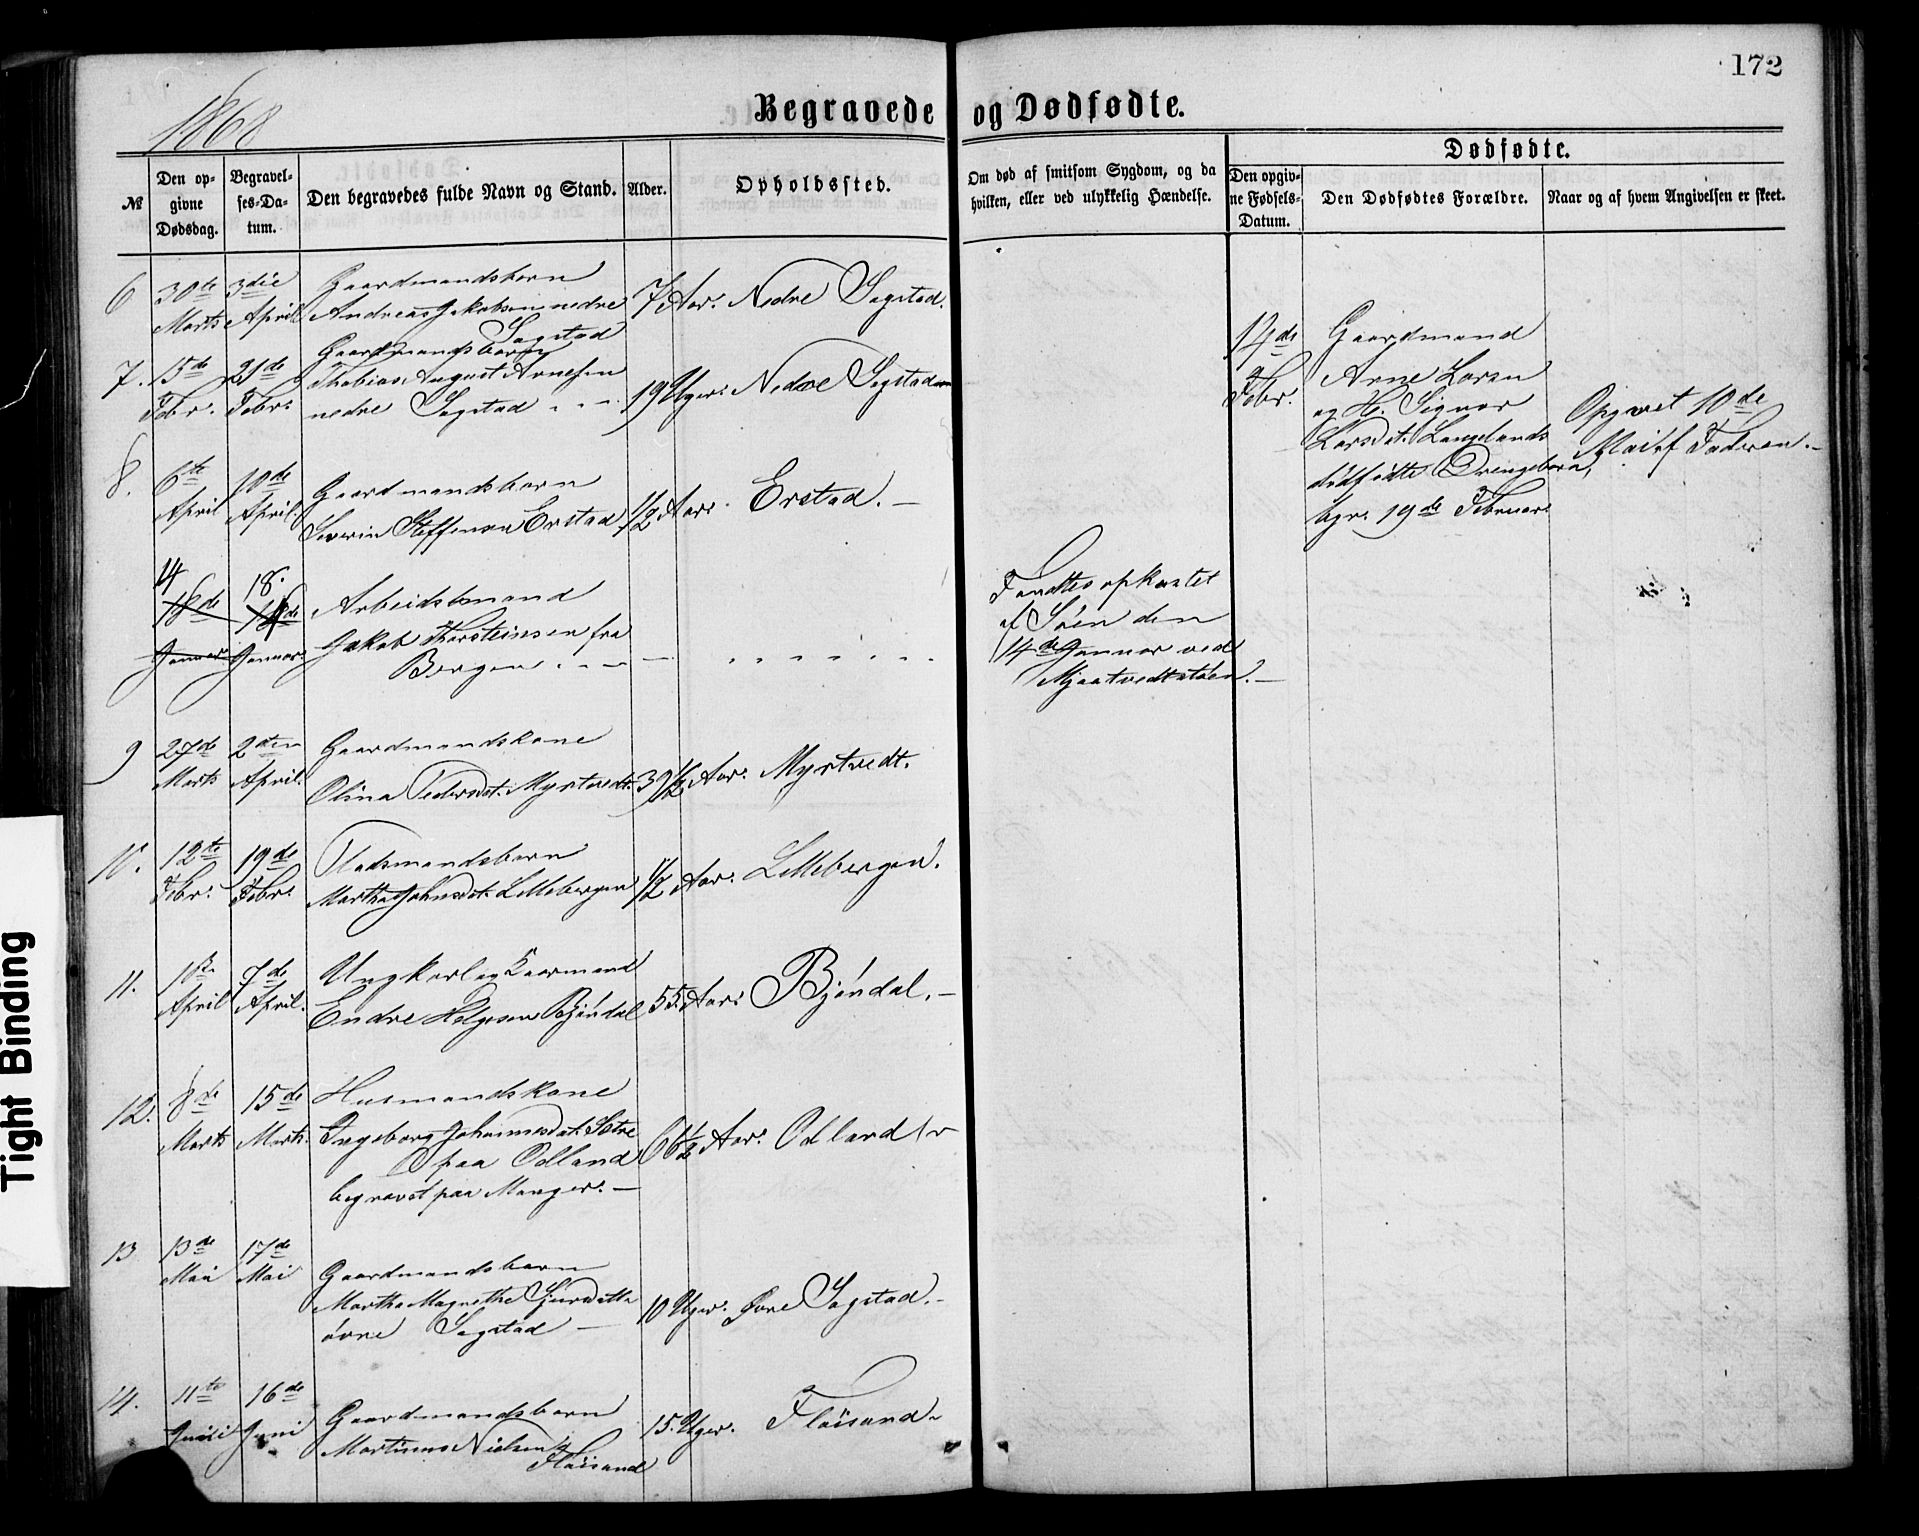 172
1868
Begravede og Dødfødte.
№
Den opgivne Dødsdag.
Begravelses-Datum.
Den begravedes fulde Navn og Stand.
Alder.
Opholdssted.
Om død af smitsom Sygdom, og da hvilken, eller ved ulykkelig Hændelse.
Dødfødte.
Den opgivne Fødsels-Datum.
Den Dødfødtes Forældre.
Naar og af hvem Angivelsen er skeet.
6 30te Marts 3die April
Gaardmandsbarn
Andreas Jakobsen nedre
Sagstad
7/12 Aar. Nedre Sagstad.
7. 15de Febr. 21de Febr.
Gaardmandsbarn
Thobias August Arnesen
nedre Sagstad
19 Uger. Nedre Sagstad
8. 6te April 10de April.
Gaardmandsbarn
Severin Steffensen Erstad
1/2 Aar. Erstad. —
14 18.
18de 18de
Januar Januar
Arbeidsmand
Jakob Thorsteinsen fra
Bergen
Fandtes opkastet
af Søen den
14de Januar ved
Mjaatvedtstøen. —
9 27de Marts 2den April.
Gaardmandskone
Olina Pedersdt. Myrtvedt.
39 1/2 Aar. Myrtvedt.
10. 12te Febr. 19de Febr.
Pladsmandsbarn
Martha Johnsdt. Lillebergen
1/2 Aar. Lillebergen.
11. 1ste April 7de April.
Ungkarl og Kaarmand
Endre Helgesen Bjøndal
55 Aar. Bjøndal. —
12. 8de Marts 15de Marts.
Husmandskone
Ingeborg Johannesdt. Sætre
paa Odland
begravet paa Manger. —
66 1/2 Aar. Odland
13 13de Mai 17de Mai
Gaardmandsbarn
Martha Magnethe Sjursdatt.
øvre Sagstad —
10 Uger. Øvre Sagstad. —
14. 11te Juni 16de Juni
Gaardmandsbarn
Martinus Nielsen
Fløisand
15 Uger. Fløisand
14de Febr.
Gaardmand
Arne Larsen
og H. Signor
Larsdt. Langelands
dødfødte Drengebarn,
bgr. 19de Februar.
Opgivet 10de
Mai af Faderen. —
Tight Binding